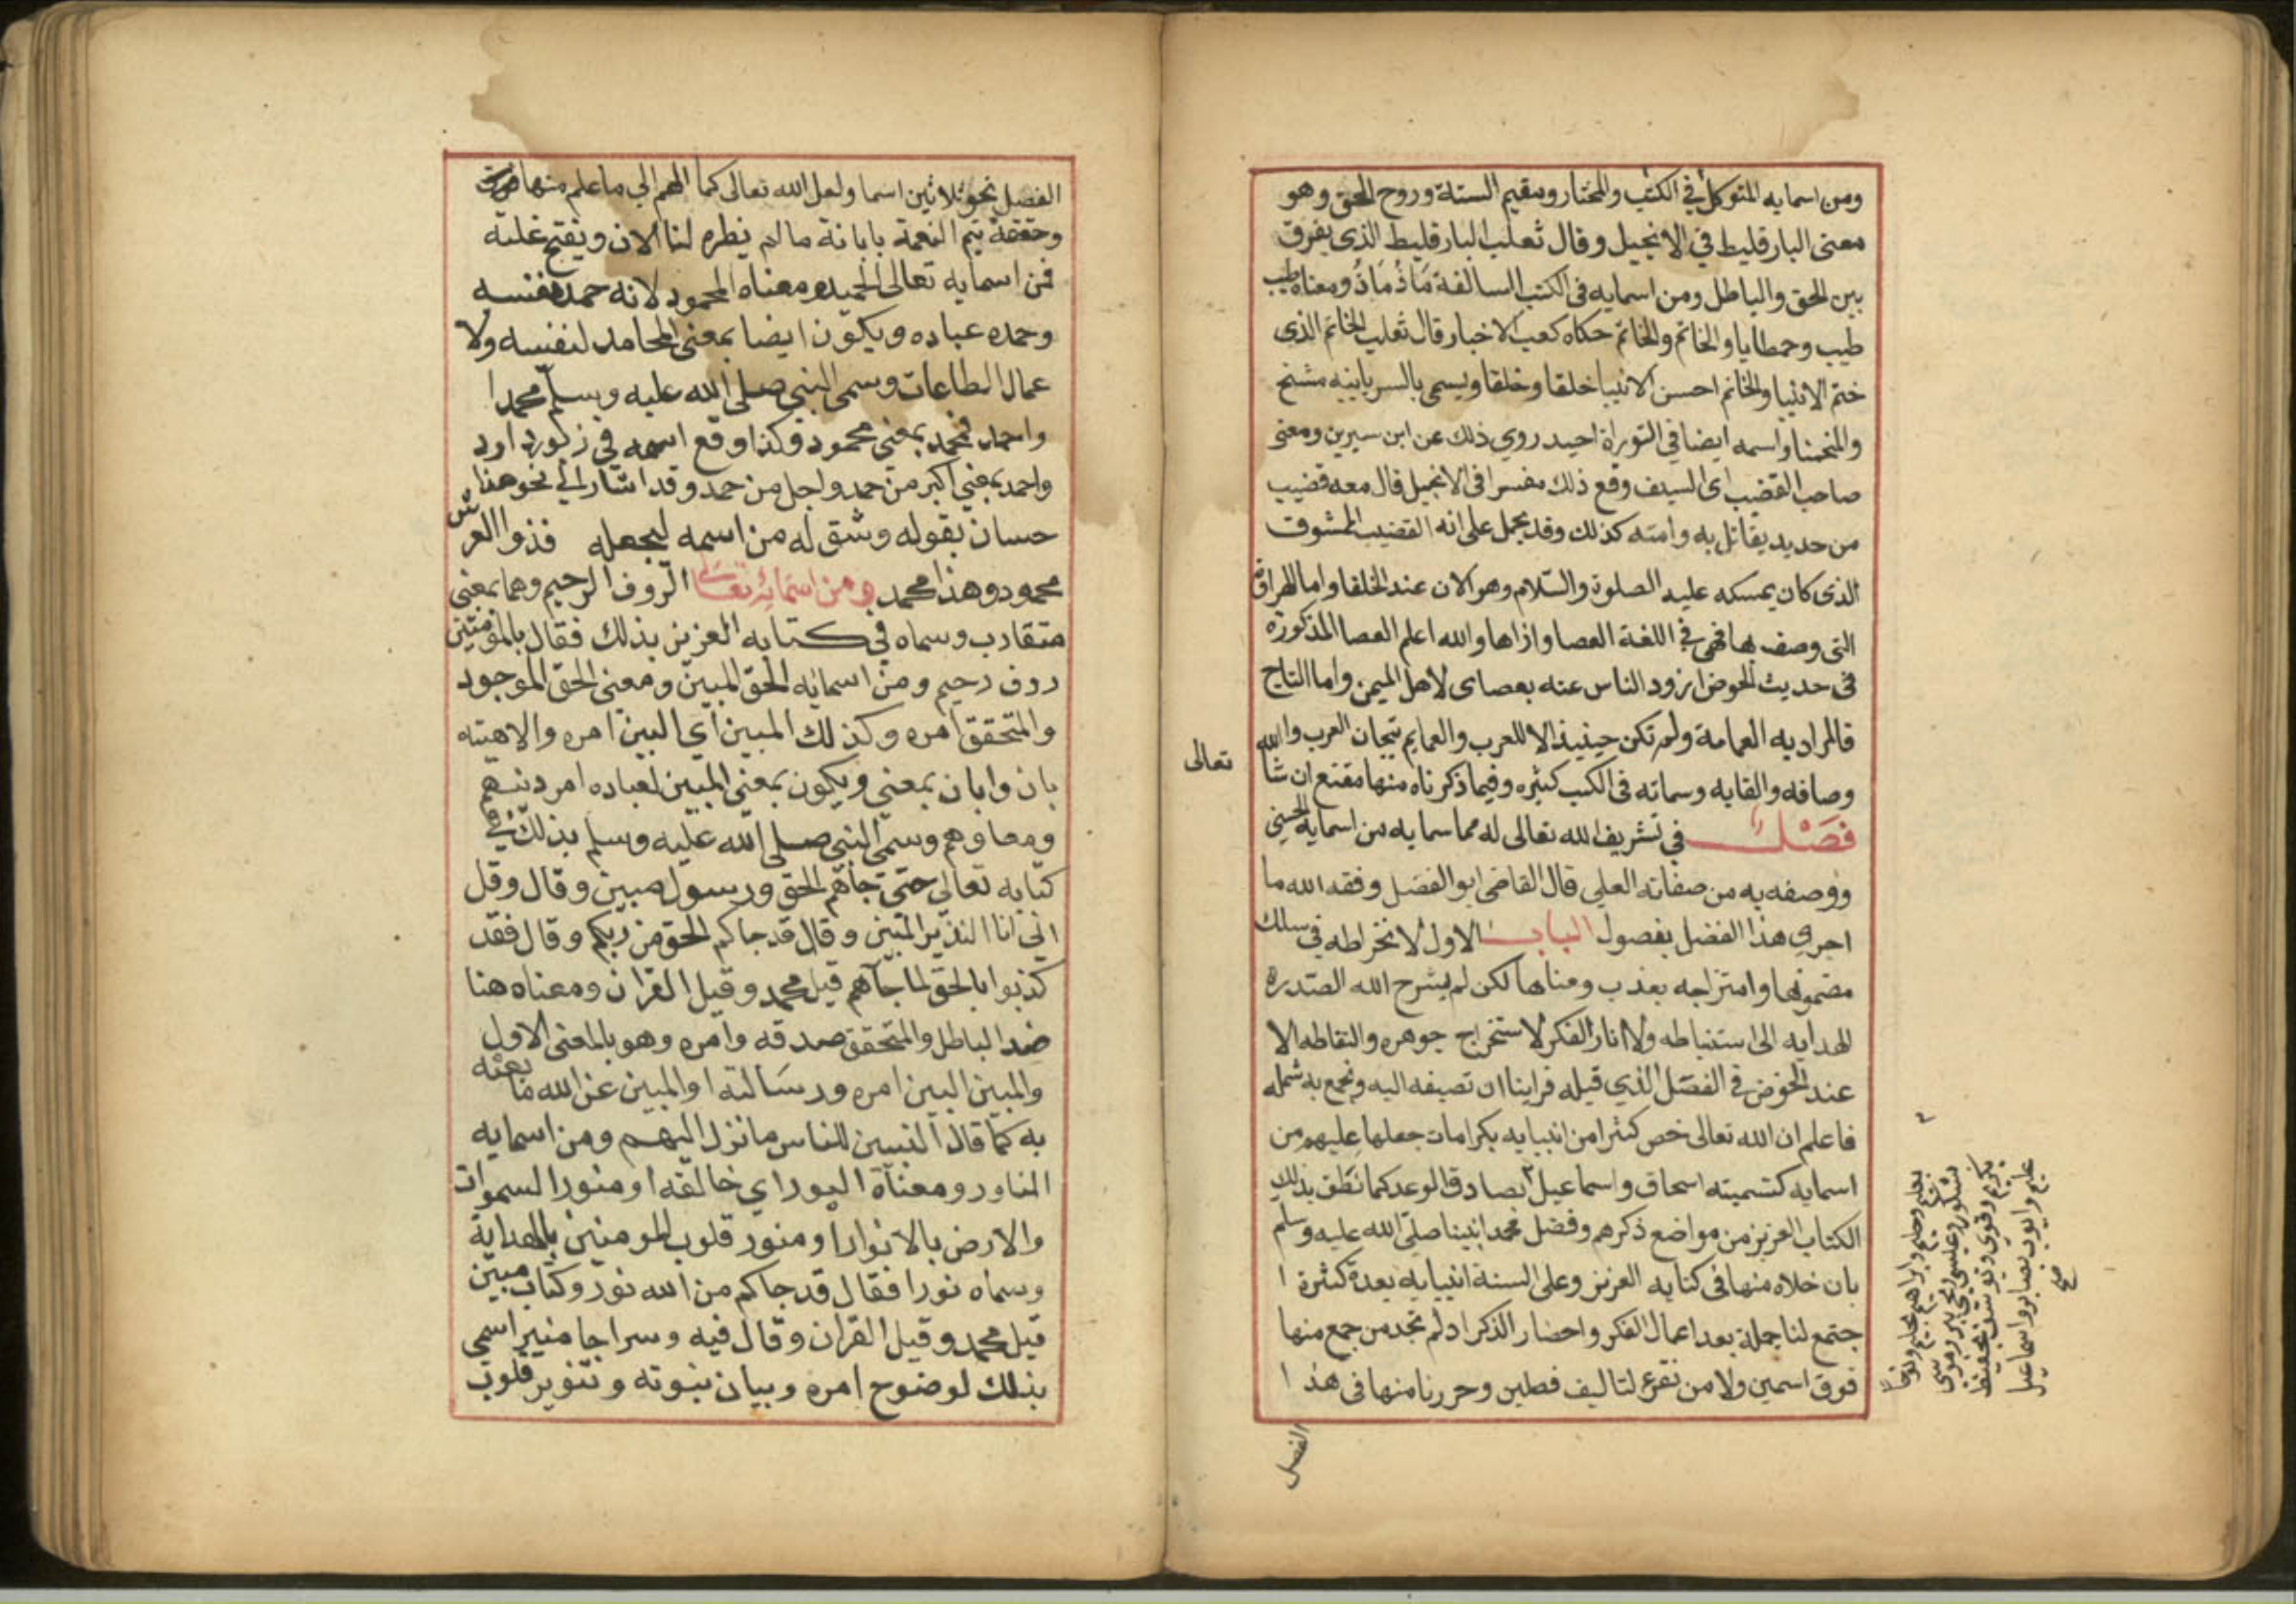 ومن اسمايه المتوكل في الكتب والمختار ومقيم السنة وروح الحق وهو
معنى البارقليط في الانجيل وقال ثعلب البارقليط الذى يفرق
بين الحق والباطل ومن اسمايه فى الكتب السالفة مَاذُ مَاذُ ومعناه طيب
طيب وحمطايا والخاتم والخاتم حكاه كعب الاخبار قال ثعلب الخاتم الذى
ختم الانبيا والخاتم احسن الانبيا خلقا وخلقا ويسمى بالسريانيه مشفح
والمنحمنا واسمه ايضا في التوراة احيد روي ذلك عن ابن سيرين ومعنى
صاحب القضيب اى السيف وقع ذلك مفسرا فى الانجيل قال معه قضيب
من حديد يقاتل به وامته كذلك وقد يحمل على انه القضيب الممشوق
الذى كان يمسكه عليه الصلوة والسلام وهو الان عند الخلفا واما الهراوة
التى وصف بها فهى فى اللغة العصا واراها والله اعلم العصا المذكورة
فى حديث الحوض ازود الناس عنه بعصاى لاهل اليمن واما التاج
فالمراد به العمامة ولم تكن حينيذ الا للعرب والعمايم تيجان العرب والله
وصافه والقابه وسماته فى الكتب كثيره وفيما ذكرناه منها مقنع ان شا
تعالى
فصل فى تشريف الله تعالى له مما سمايه من اسمايه الحسنى
ووصفه به من صفاته العلي قال القاضى ابو الفضل وفقه الله ما
احرى هذا الفصل بفصول الباب الاول لانخراطه في سلك
مضمونها وامتزاجه بعذب ومناها لكن لم يشرح الله الصدره
الهدايه الى استنباطه ولا انار الفكر لاستخراج جوهره والتقاطه الا
عند الخوض فى الفصل الذي قبله فراينا ان نضيفه اليه ونجمع به شمله
فاعلم ان الله تعالى خص كثيرا من انبيايه بكرامات جعلها عليهم من
اسمايه كتسميته اسحاق واسماعيل بصادق الوعد كما نطق بذلك
الكتاب العزيز من مواضع ذكرهم وفضل محمدا نبينا صلى الله عليه وسلم
بان خلاه منها فى كتابه العزيز وعلى السنة انبيايه بعدة كثيرة ا
جتمع لنا جملة بعد اعمال الفكر واحضار الذكر اذ لم نجد من جمع منها
فوق اسمين ولا من تفرع لتاليف فصلين وحررنا منها فى هذا ا
الفصل
بعليم وحليم وابراهيم بحليم ونوحا
بشكور وعيسى ويحيى ببر وموسى
بكريم وقوى ويوسف بحفيظ
عليم وايوب بصابر واسماعيل
صح
الفصل نحو ثلاثين اسما ولعل الله تعالى كما الهم الى ما علم منها
وحققه يتم النعمة بابانة ما لم يظهره لنا الان ويفتح غلقه
فمن اسمايه تعالى الحميد ومعناه المحمود لانه حمد نفسه
وحمده عباده ويكون ايضا بمعنى الحامد لنفسه ولا
عمال الطاعات وسمى النبي صلى الله عليه وسلم محمدا
واحمد فمحمد بمعنى محمود وكذا وقع اسمه في زبور داود
واحمد بمعنى اكبر من حمد واجل من حمد وقد اشار الى نحو هذا
حسان بقوله وشق له من اسمه ليجعله فذوا العرش
محمود وهذا محمد ومن اسمائه تعالى الروف الرحيم وهما بمعنى
متقارب وسماه في كتابه العزيز بذلك فقال بالمؤمنين
روف رحيم ومن اسمائه الحق المبين ومعنى الحق الموجود
والمتحقق امره وكذلك المبين اي البين امره والاهيته
بان وابان بمعنى ويكون بمعنى المبين لعباده امر دينهم
ومعادهم وسمى النبي صلى الله عليه وسلم بذلك في
كتابه تعالى حتى جاهم الحق ورسول مبين وقال وقل
اني انا النذير المبين وقال قد جاكم الحق من ربكم وقال فقد
كذبوا بالحق لما جاهم قيل محمد وقيل القران ومعناه هنا
ضد الباطل والمتحقق صدقه وامره وهو بالمعنى الاول
والمبين البين امره ورسالته او المبين عن الله ما بعثه
به كما قال لتبين للناس ما نزل اليهم ومن اسمايه
النور ومعناه ذو النور اي خالقه او منور السموات
والارض بالانوار او منور قلوب المومنين بالهداية
وسماه نورا فقال قد جاكم من الله نور وكتاب مبين
قيل محمد وقيل القران وقال فيه وسراجا منيرا سمى
بذلك لوضوح امره وبيان نبوته وتنوير قلوب